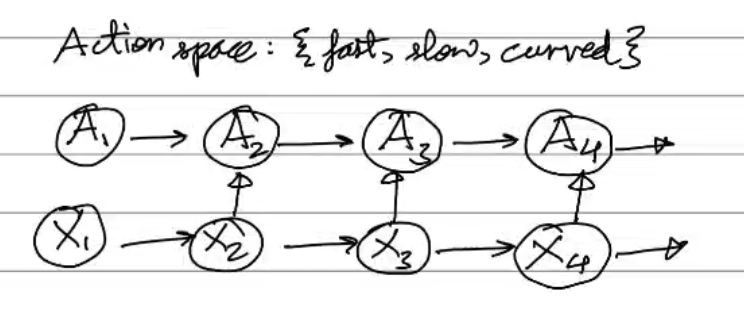 Action space: {fast, slow, curved}
A₁ A₂ A₃ A₄
X₁ X₂ X₃ X₄